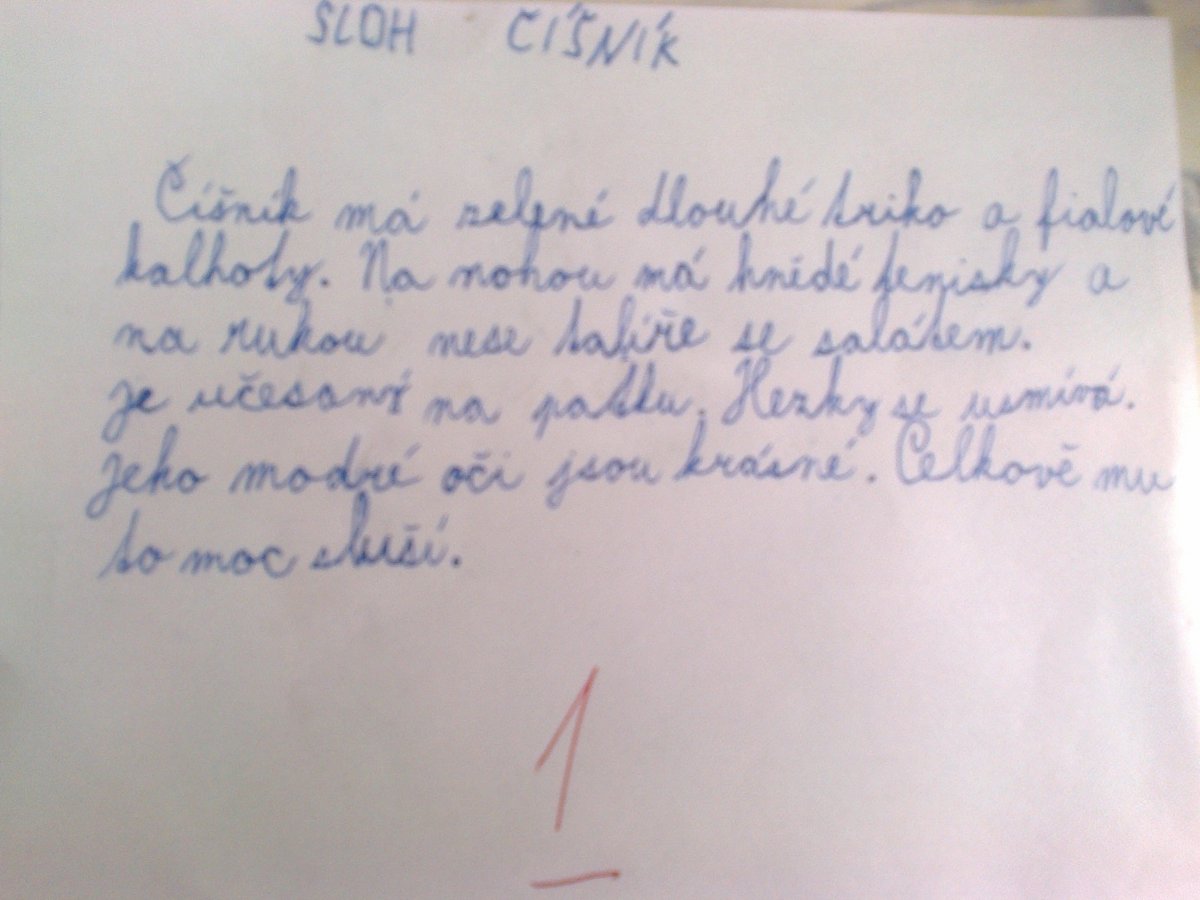 SLOH ČÍŠNÍK
Číšník má zelené dlouhé triko a fialové
kalhoty. Na nohou má hnědé tenisky a
na rukou nese talíře se salátem.
je učesaný na patku. Hezky se usmívá.
jeho modré oči jsou krásné. Celkově mu
to moc sluší.
1